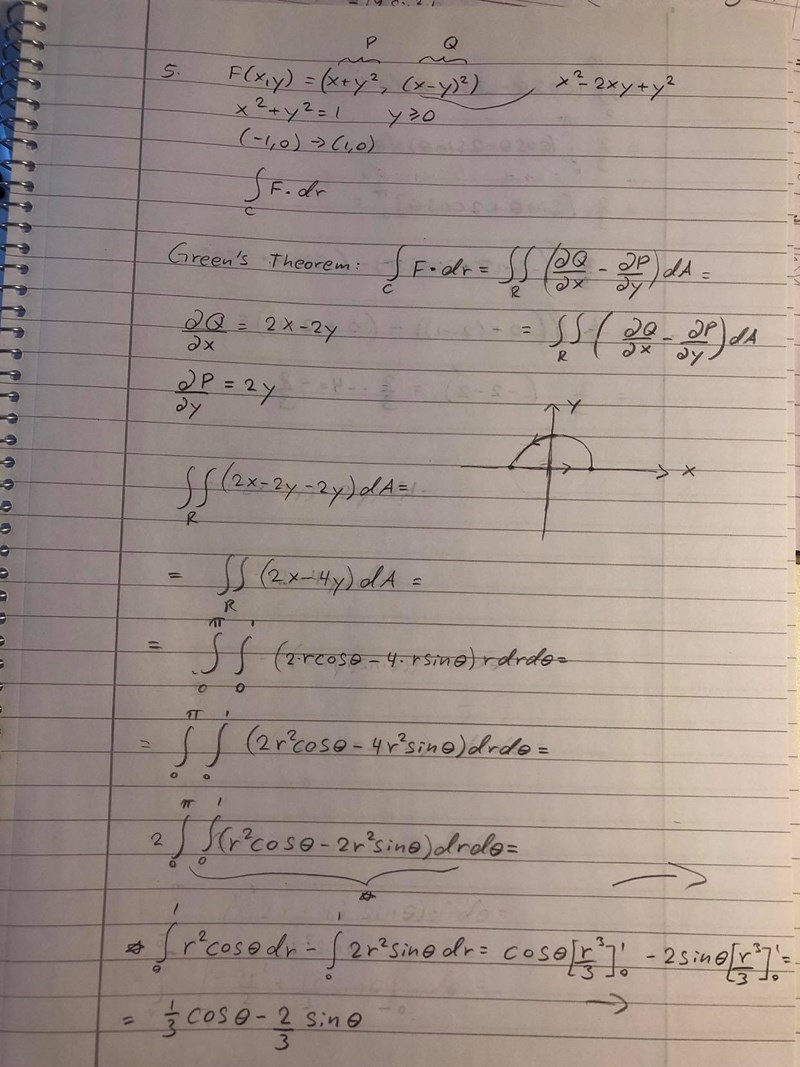 P Q
5. F(x,y) = (x+y², (x-y)²) x²-2xy+y²
x²+y²=1 y≥0
(-1,0)→(1,0)
∫_C F·dr
Green's Theorem: ∫_C F·dr = ∬_R (∂Q/∂x - ∂P/∂y)dA =
∂Q/∂x = 2x-2y = ∬_R (∂Q/∂x - ∂P/∂y)dA
∂P/∂y = 2y
Y
X
∬_R (2x-2y-2y)dA=
= ∬_R (2x-4y)dA =
= ∫_0^π ∫_0^1 (2·rcosθ-4·rsinθ)rdrdθ=
= ∫_0^π ∫_0^1 (2r²cosθ-4r²sinθ)drdθ=
2 ∫_0^π ∫_0^1 (r²cosθ-2r²sinθ)drdθ= →
☆
☆ ∫_0^1 r²cosθdr - ∫_0^1 2r²sinθdr = cosθ[r³/3]_0^1 - 2sinθ[r³/3]_0^1 =
= 1/3 cosθ - 2/3 sinθ →